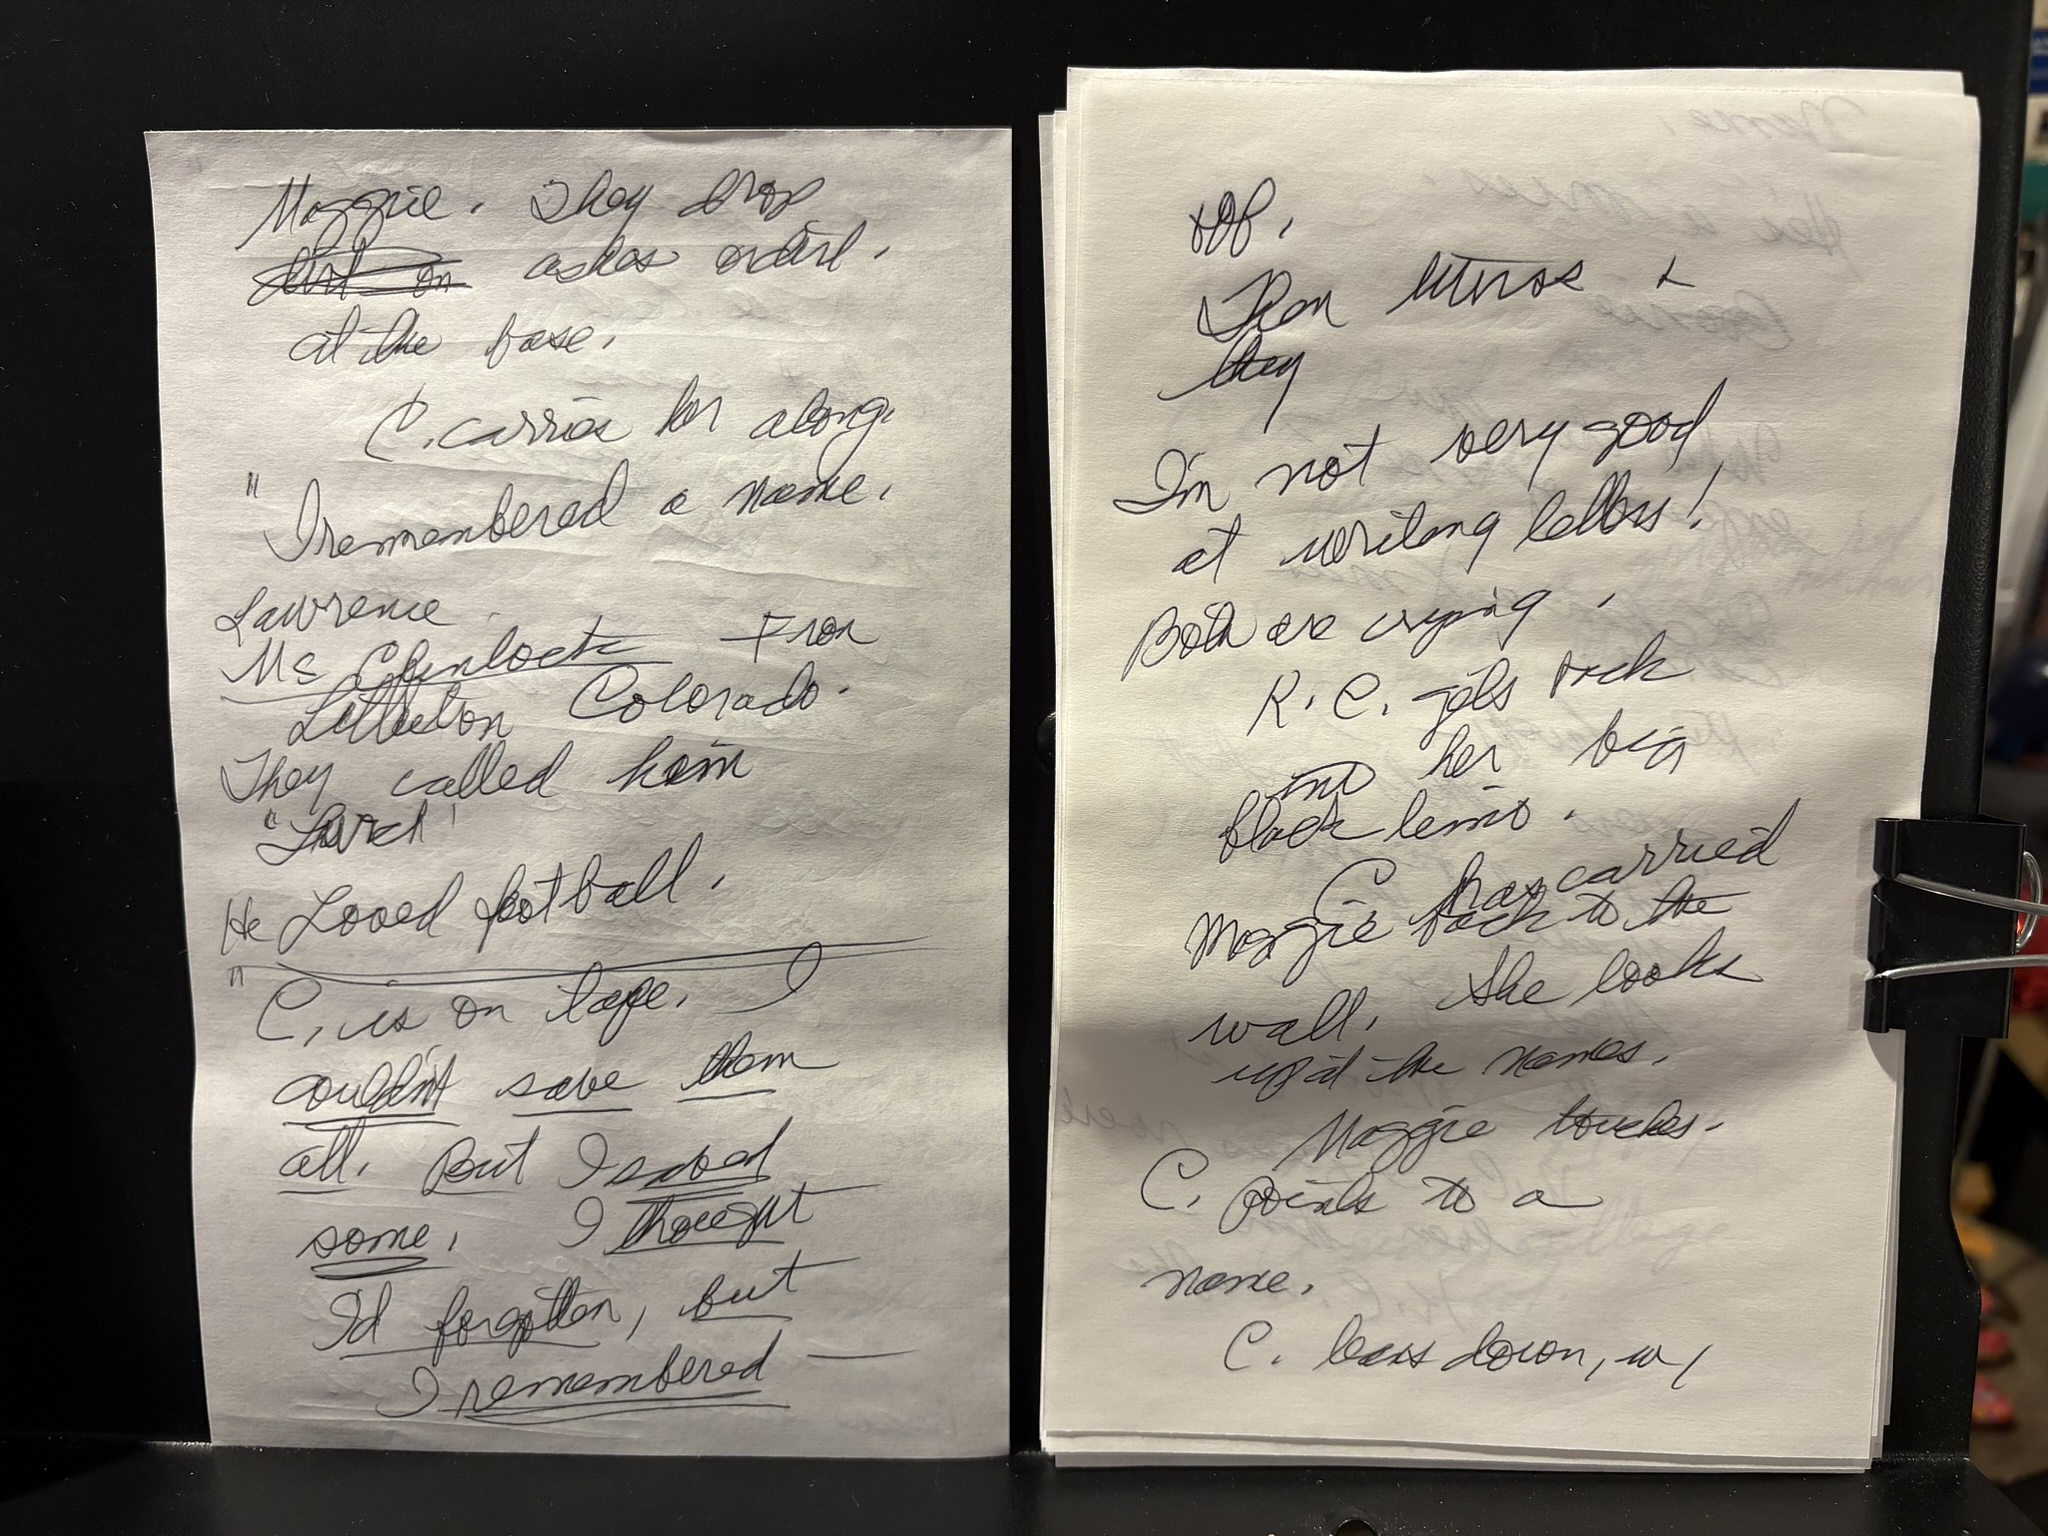 Maggie. They drop
dirt on ashes
at the base.
C. carries her along.
"I remembered a name.
Lawrence
Mc Clinlock From
Littleton Colorado.
They called him
"Larch"
He Loved football.
" C. is on tape. I
couldn't save them
all. But I saved
some. I thought
I'd forgotten, but
I remembered —
off.
Then letters &
they
I'm not very good
at writing letters!
Both are crying.
R. C. gets back
into her big
black limo.
C has carried
Maggie back to the
wall. She looks
up at the names.
Maggie touches.
C. points to a
name.
C. down, w/